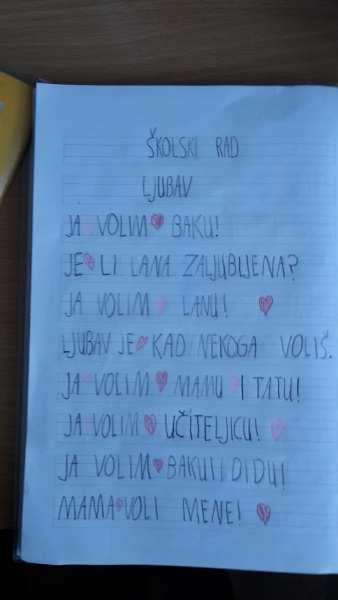 ŠKOLSKI RAD
LJUBAV
JA VOLIM BAKU!
JE LI LANA ZALJUBLJENA?
JA VOLIM LANU!
LJUBAV JE KAD NEKOGA VOLIŠ.
JA VOLIM MAMU I TATU!
JA VOLIM UČITELJICU!
JA VOLIM BAKU I DIDU!
MAMA VOLI MENE!